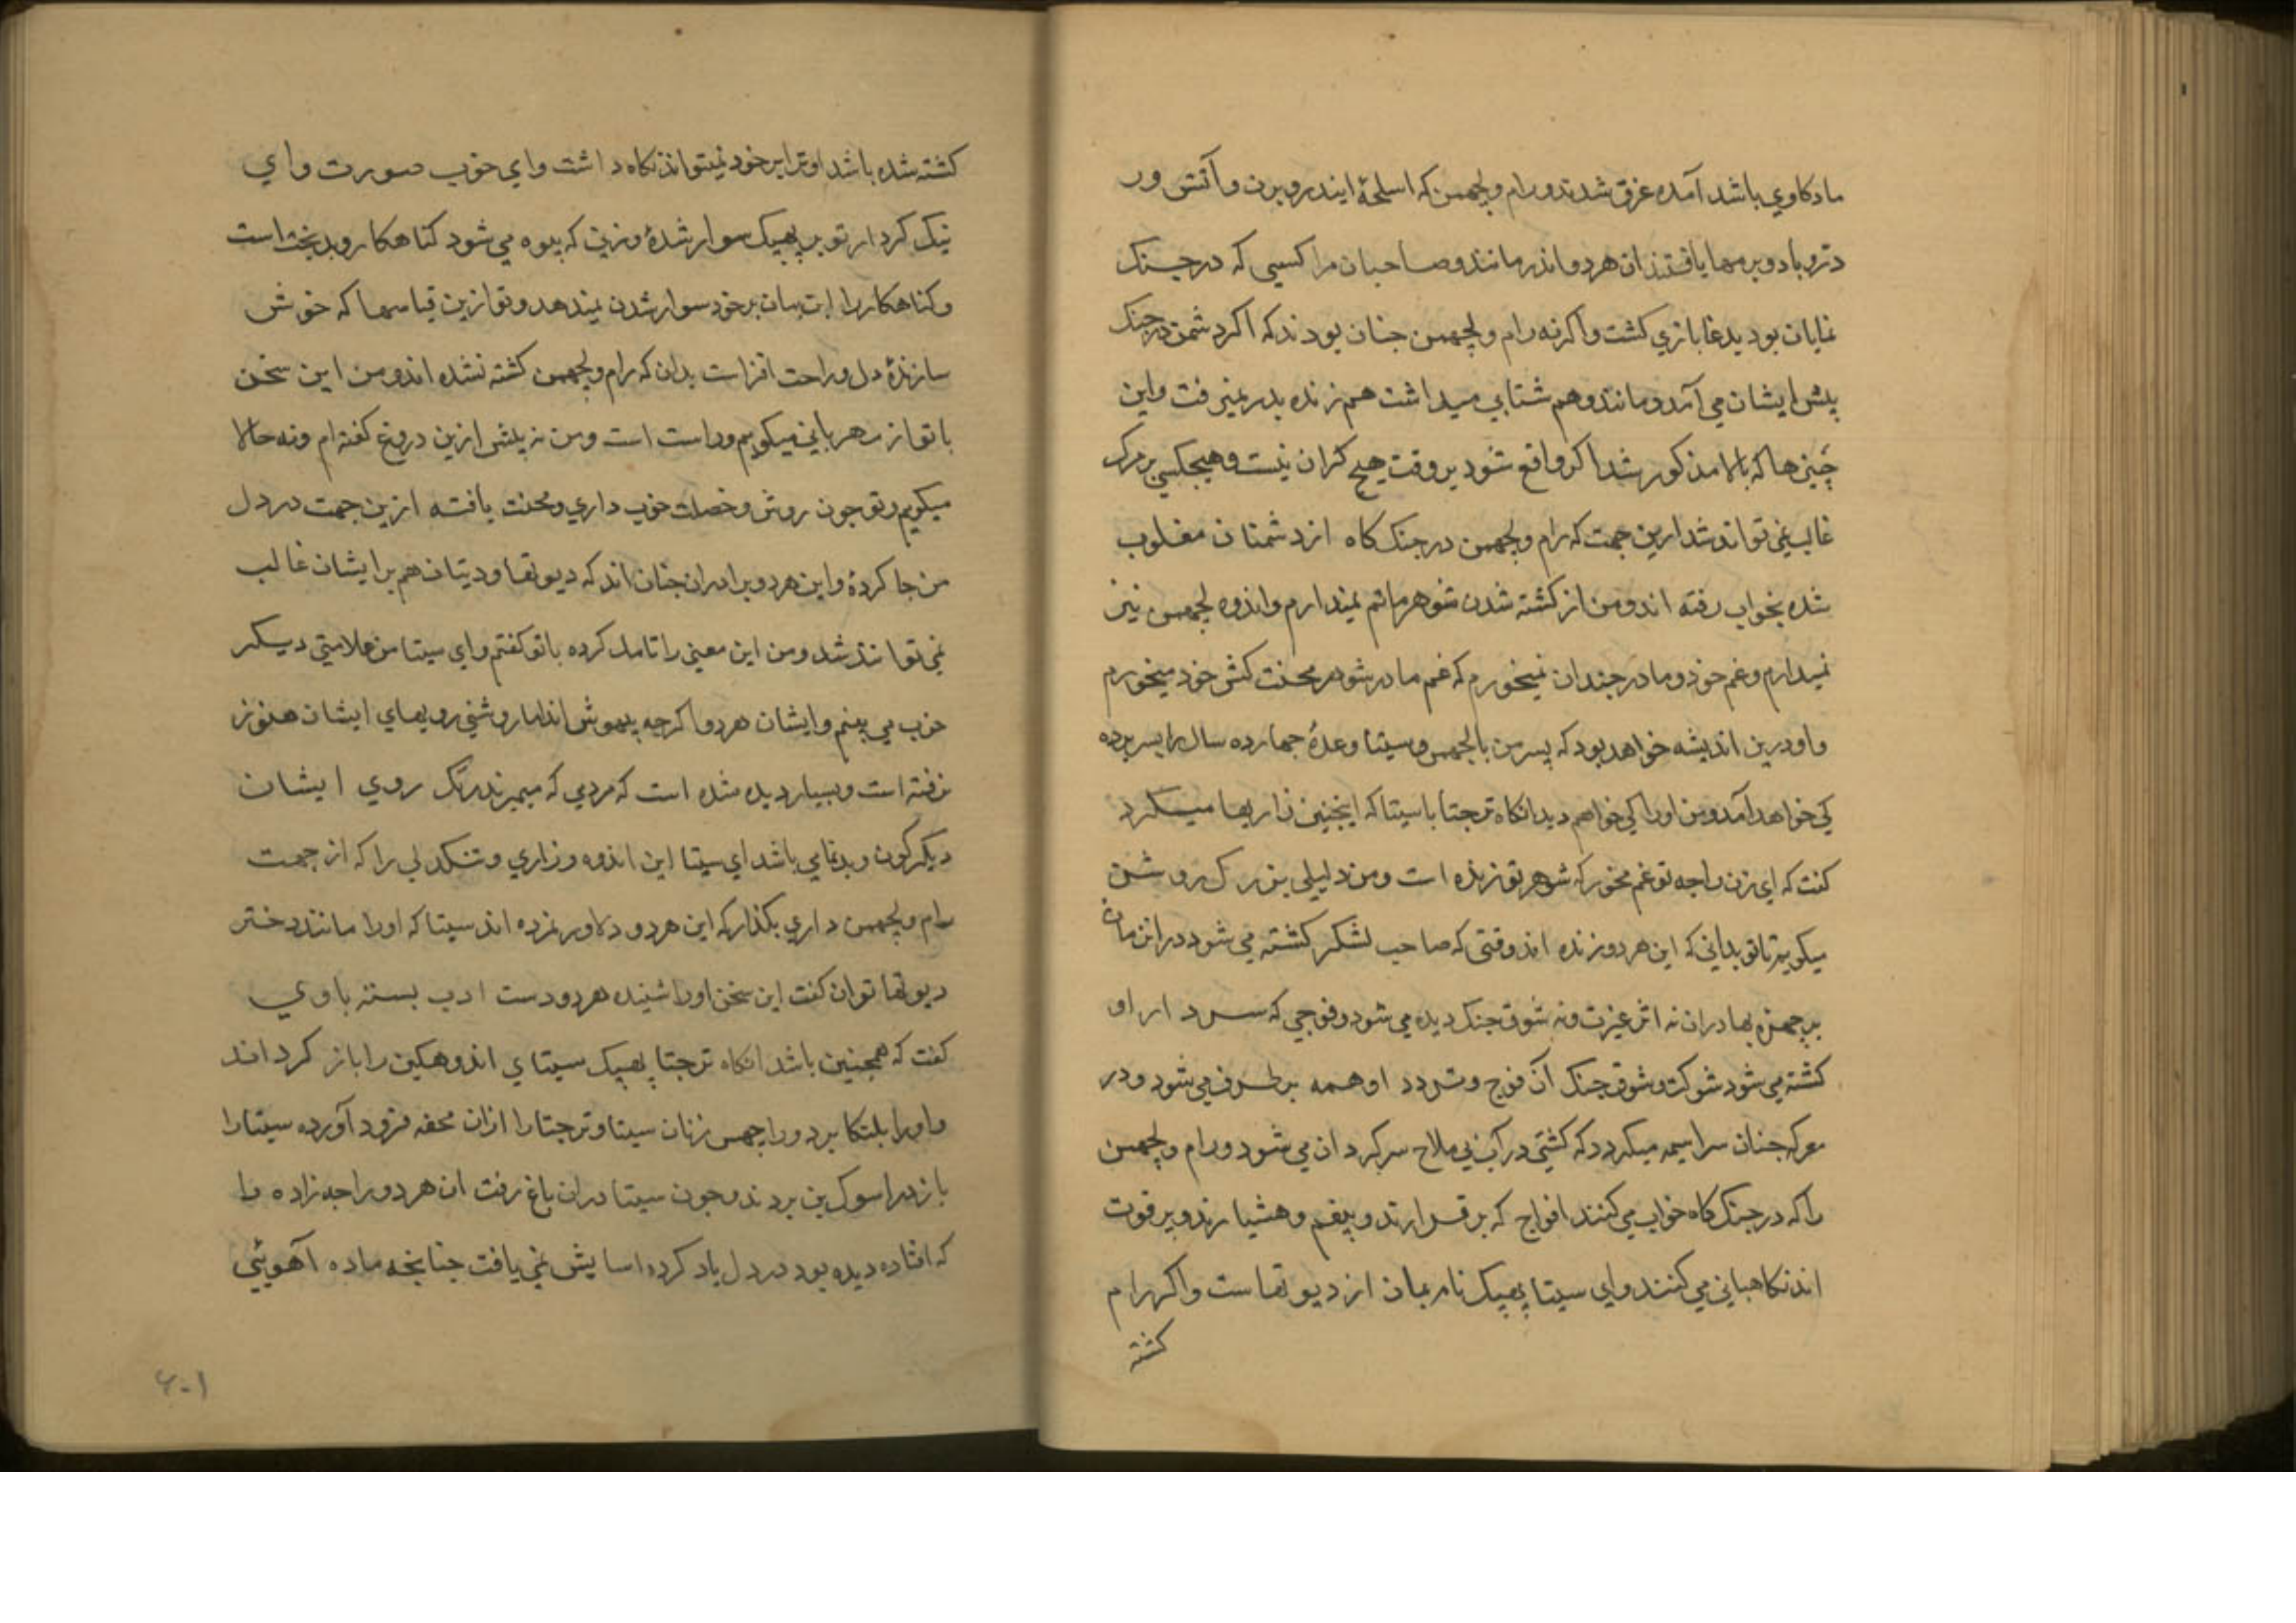 ماده کاوی باشد آمده غرق شدند و رام و لچهمن که اسلحهٔ ایندر و برن و آتش و ر
در و باد و برمها یافتند ان هر دو اندر مانند و صاحبان مرا کسی که در جنک
نمایان بود بدغابازی کشت و اکرنه رام و لچهمن جنان بودند که اکر دشمن در جنک
پیش ایشان می آمد و مانند وهم شتابی میداشت هم زنده بدر نمیرفت و این
چیزها که بالا مذکور شد اکر واقع شود بر وقت هیچ کران نیست و هیچکسی بر مرک
غالب نمی تواند شد ازین جهت که رام و لچهمن در جنک کاه از دشمنان مغلوب
شده بخواب رفته اند و من از کشته شدن شوهر ماتم نمیدارم و اندوه لچهمن نیز
نمیدارم و غم خود و مادر جندان نمیخورم که غم مادر شوهر محنت کش خود میخورم
و او درین اندیشه خواهد بود که پسر من با لچهمن و سیتا وعدهٔ جهارده سال را بسر برده
کی خواهد آمد و من او را کی خواهم دید انکاه ترجتا با سیتا که اینجنین زاریها میکرد
کفت که ای زن راجه تو غم مخور که شوهر تو زنده است و من دلیلی بزرک روشن
میکویم تا تو بدانی که این هر دو زنده اند وقتی که صاحب لشکر کشته می شود در ان زمان
بر چهرهٔ بهادران نه اثر غیرت و نه شوق جنک دیده می شود و فوجی که سردار او
کشته می شود شوکت و شوق جنک آن فوج و تردد او همه بر طرف می شود و در
معرکه جنان سراسیمه میکردد که کشتی در آب بی ملاح سرکردان می شود و رام و لچهمن
را که در جنک کاه خواب می کنند افواج که بر قرارند و بیغم و هشیارند و بر قوت
اند نکاهبانی می کنند و ای سیتا پهپک نام بمان از دیوتهاست و اکر رام
کشته
کشته شده باشد او ترا بر خود نمیتواند نکاه داشت و ای خوب صورت و ای
نیک کردار تو بر پهپک سوار شدهٔ و زنی که بیوه می شود کناهکار و بدبخت است
و کناهکار را این بمان بر خود سوار شدن نمیدهد و تو ازین قیاسها که خوش
سازندهٔ دل و راحت افزاست بدان که رام و لچهمن کشته نشده اند و من این سخن
با تو از مهربانی میکویم و راست است و من نه پیش ازین دروغ کفته ام و نه حالا
میکویم و تو جون روش و خصلت خوب داری و محنت یافته ازین جهت در دل
من جا کردهٔ و این هر دو برادران جنان اند که دیوتها و دیتان هم بر ایشان غالب
نمی توانند شد و من این معنی را تامل کرده با تو کفتم و ای سیتا من علامتی دیکر
خوب می بینم و ایشان هر دو اکرچه بیهوش اند اما روشنی رویهای ایشان هنوز
نرفته است و بسیار دیده شده است که مردی که میمیرند رنک روی ایشان
دیکرکون و بدنمایی باشد ای سیتا این اندوه و زاری و تنکدلی را که از جهت
رام و لچهمن داری بکذار که این هر دو دلاور نمرده اند سیتا که او را مانند دختر
دیوتها توان کفت این سخن او را شنیده هر دو دست ادب بسته با وی
کفت که همجنین باشد انکاه ترجتا پهپک سیتای اندوهکین را باز کردانـد
و او را بلنکا برد و راچهس زنان سیتا و ترجتا را ازان محفه فرود آورده سیتا را
باز در اسوک بن بردند و جون سیتا در ان باغ رفت ان هر دو راجه زاده را
که افتاده دیده بود در دل یاد کرده اسایش نمی یافت جنانجه ماده آهوئی
۶۰۱